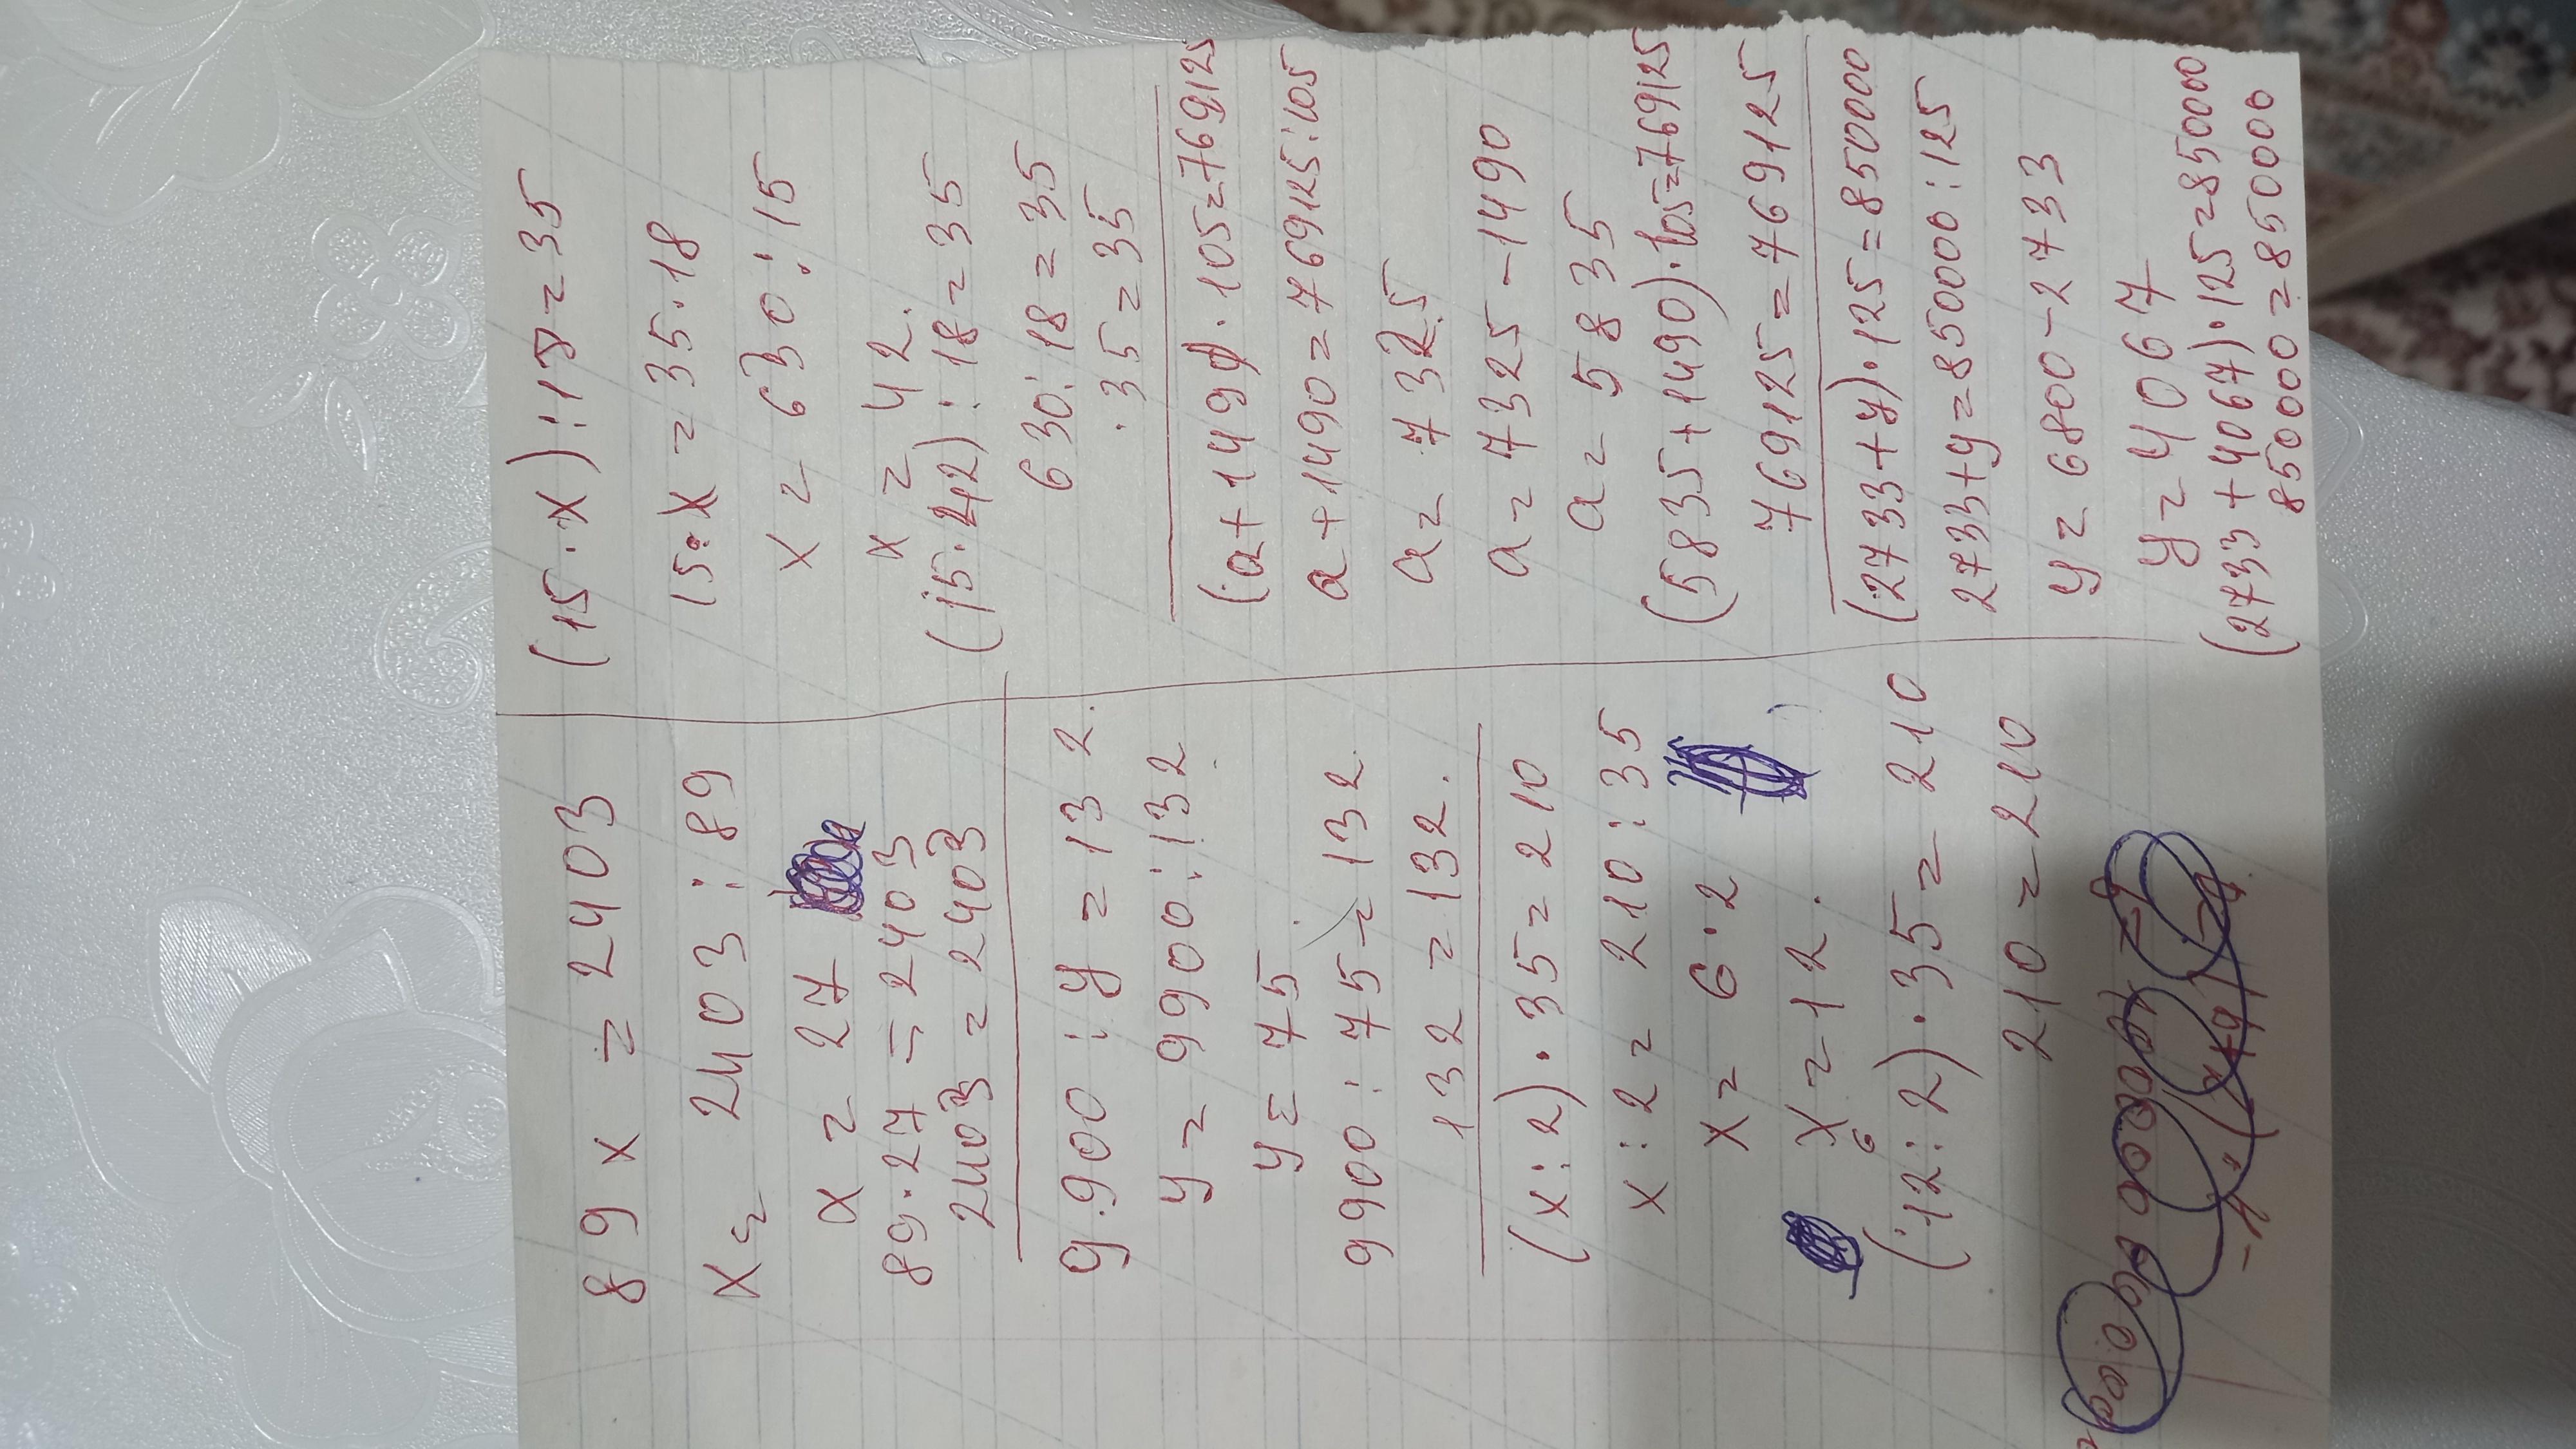 89x = 2403
x = 2403 : 89
x = 27
89 · 27 = 2403
2403 = 2403
9.900 : y = 132.
y = 9900 : 132.
y = 75
9900 : 75 = 132.
132 = 132.
(x : 2) · 35 = 210
x : 2 = 210 : 35
x = 6 · 2
x = 12.
6
(12 : 2) · 35 = 210
210 = 210
(15 · x) : 18 = 35
15 · x = 35 · 18
x = 630 : 15
x = 42.
(15 · 42) : 18 = 35
630 : 18 = 35
. 35 = 35
(a + 1490) · 105 = 769125
a + 1490 = 769125 : 105
a = 7325
a = 7325 - 1490
a = 5835
(5835 + 1490) · 105 = 769125
769125 = 769125
(2733 + y) · 125 = 850000
2733 + y = 850000 : 125
y = 6800 - 2733
y = 4067
(2733 + 4067) · 125 = 850000
850000 = 850000